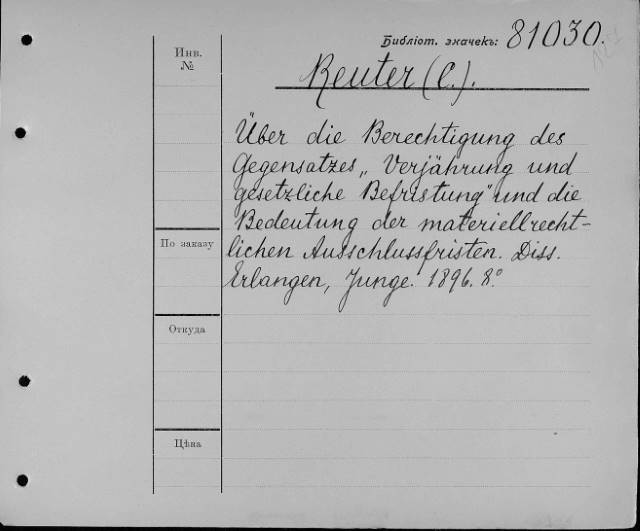 Библіот. значекъ: 81030.
Инв.
№
Reuter (C.).
Über die Berechtigung des
Gegensatzes „Verjährung und
gesetzliche Befristung" und die
Bedeutung der materiellrecht-
lichen Ausschlussfristen. Diss.
Erlangen, Junge. 1896. 8°
По заказу
Откуда
Цѣна